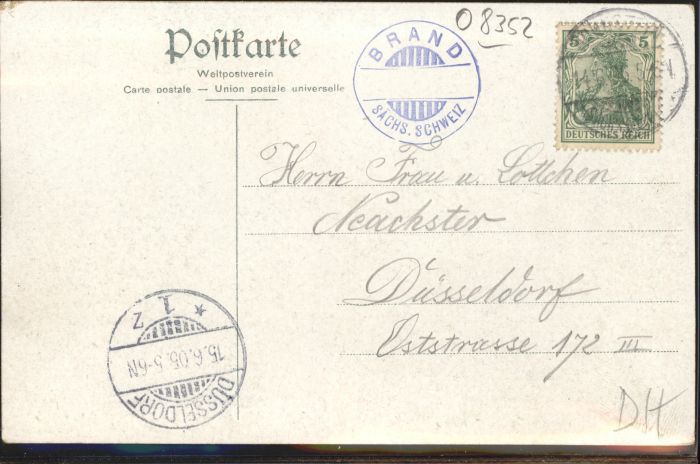 O 8352
Postkarte
Weltpostverein
Carte postale — Union postale universelle
BRAND
SÄCHS. SCHWEIZ
5 5
DEUTSCHES REICH
Herrn Frau u. Lottchen
Neachster
Düsseldorf
Oststrasse 172 III
DÜSSELDORF
15.6.05.5-6N
* 1. Z
DH